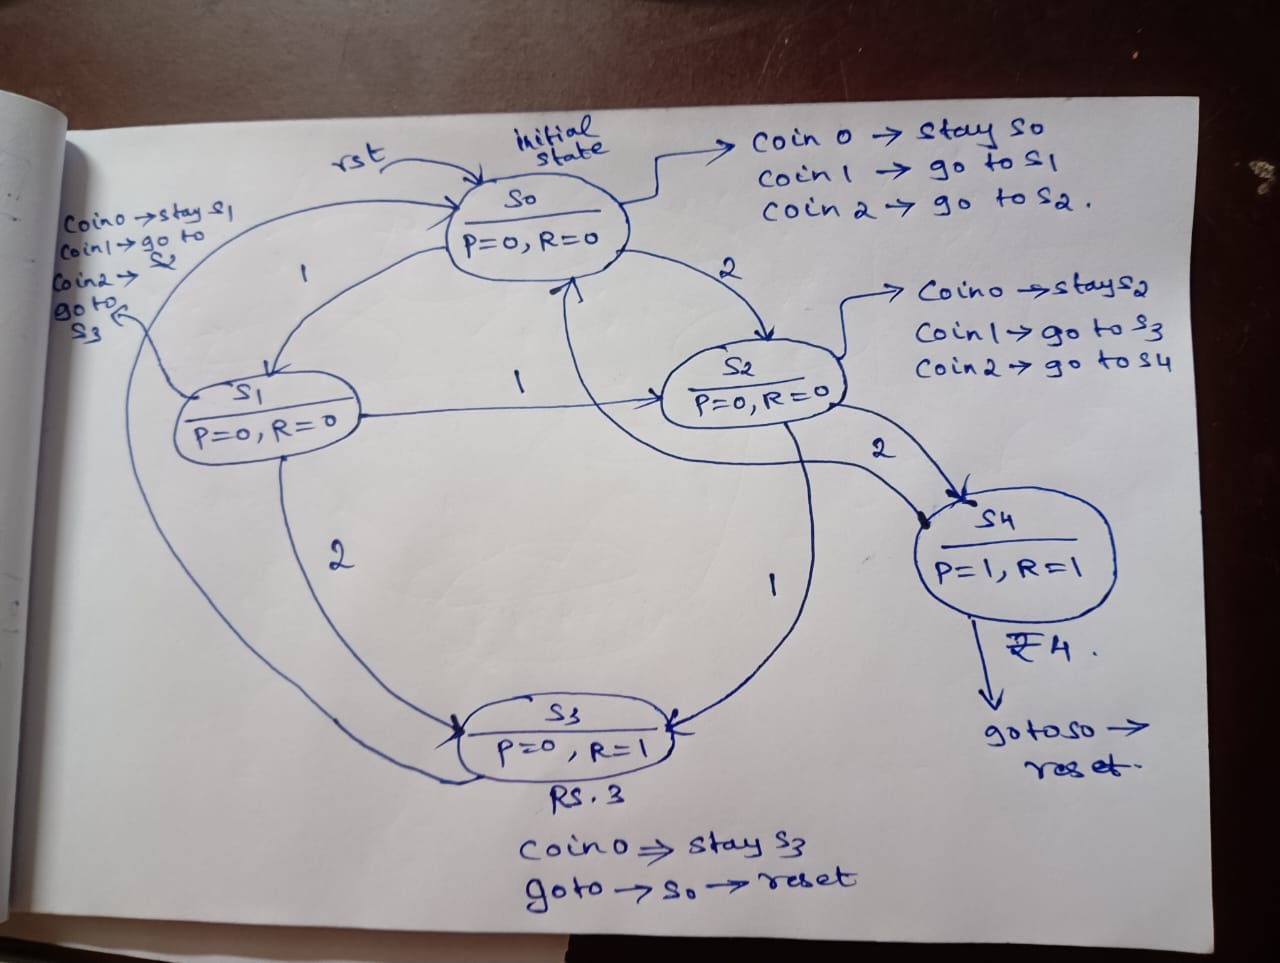 initial
state
rst
S0
P=0, R=0
coin 0 → stay S0
coin 1 → go to S1
coin 2 → go to S2.
coin0 → stay S1
coin1 → go to
S2
coin2 →
go to
S3
1
2
coin0 → stay S2
coin1 → go to S3
coin2 → go to S4
S1
P=0, R=0
1
S2
P=0, R=0
2
2
1
S4
P=1, R=1
₹4.
go to S0 →
reset.
S3
P=0, R=1
RS.3
coin0 ⇒ stay S3
goto → S0 → reset